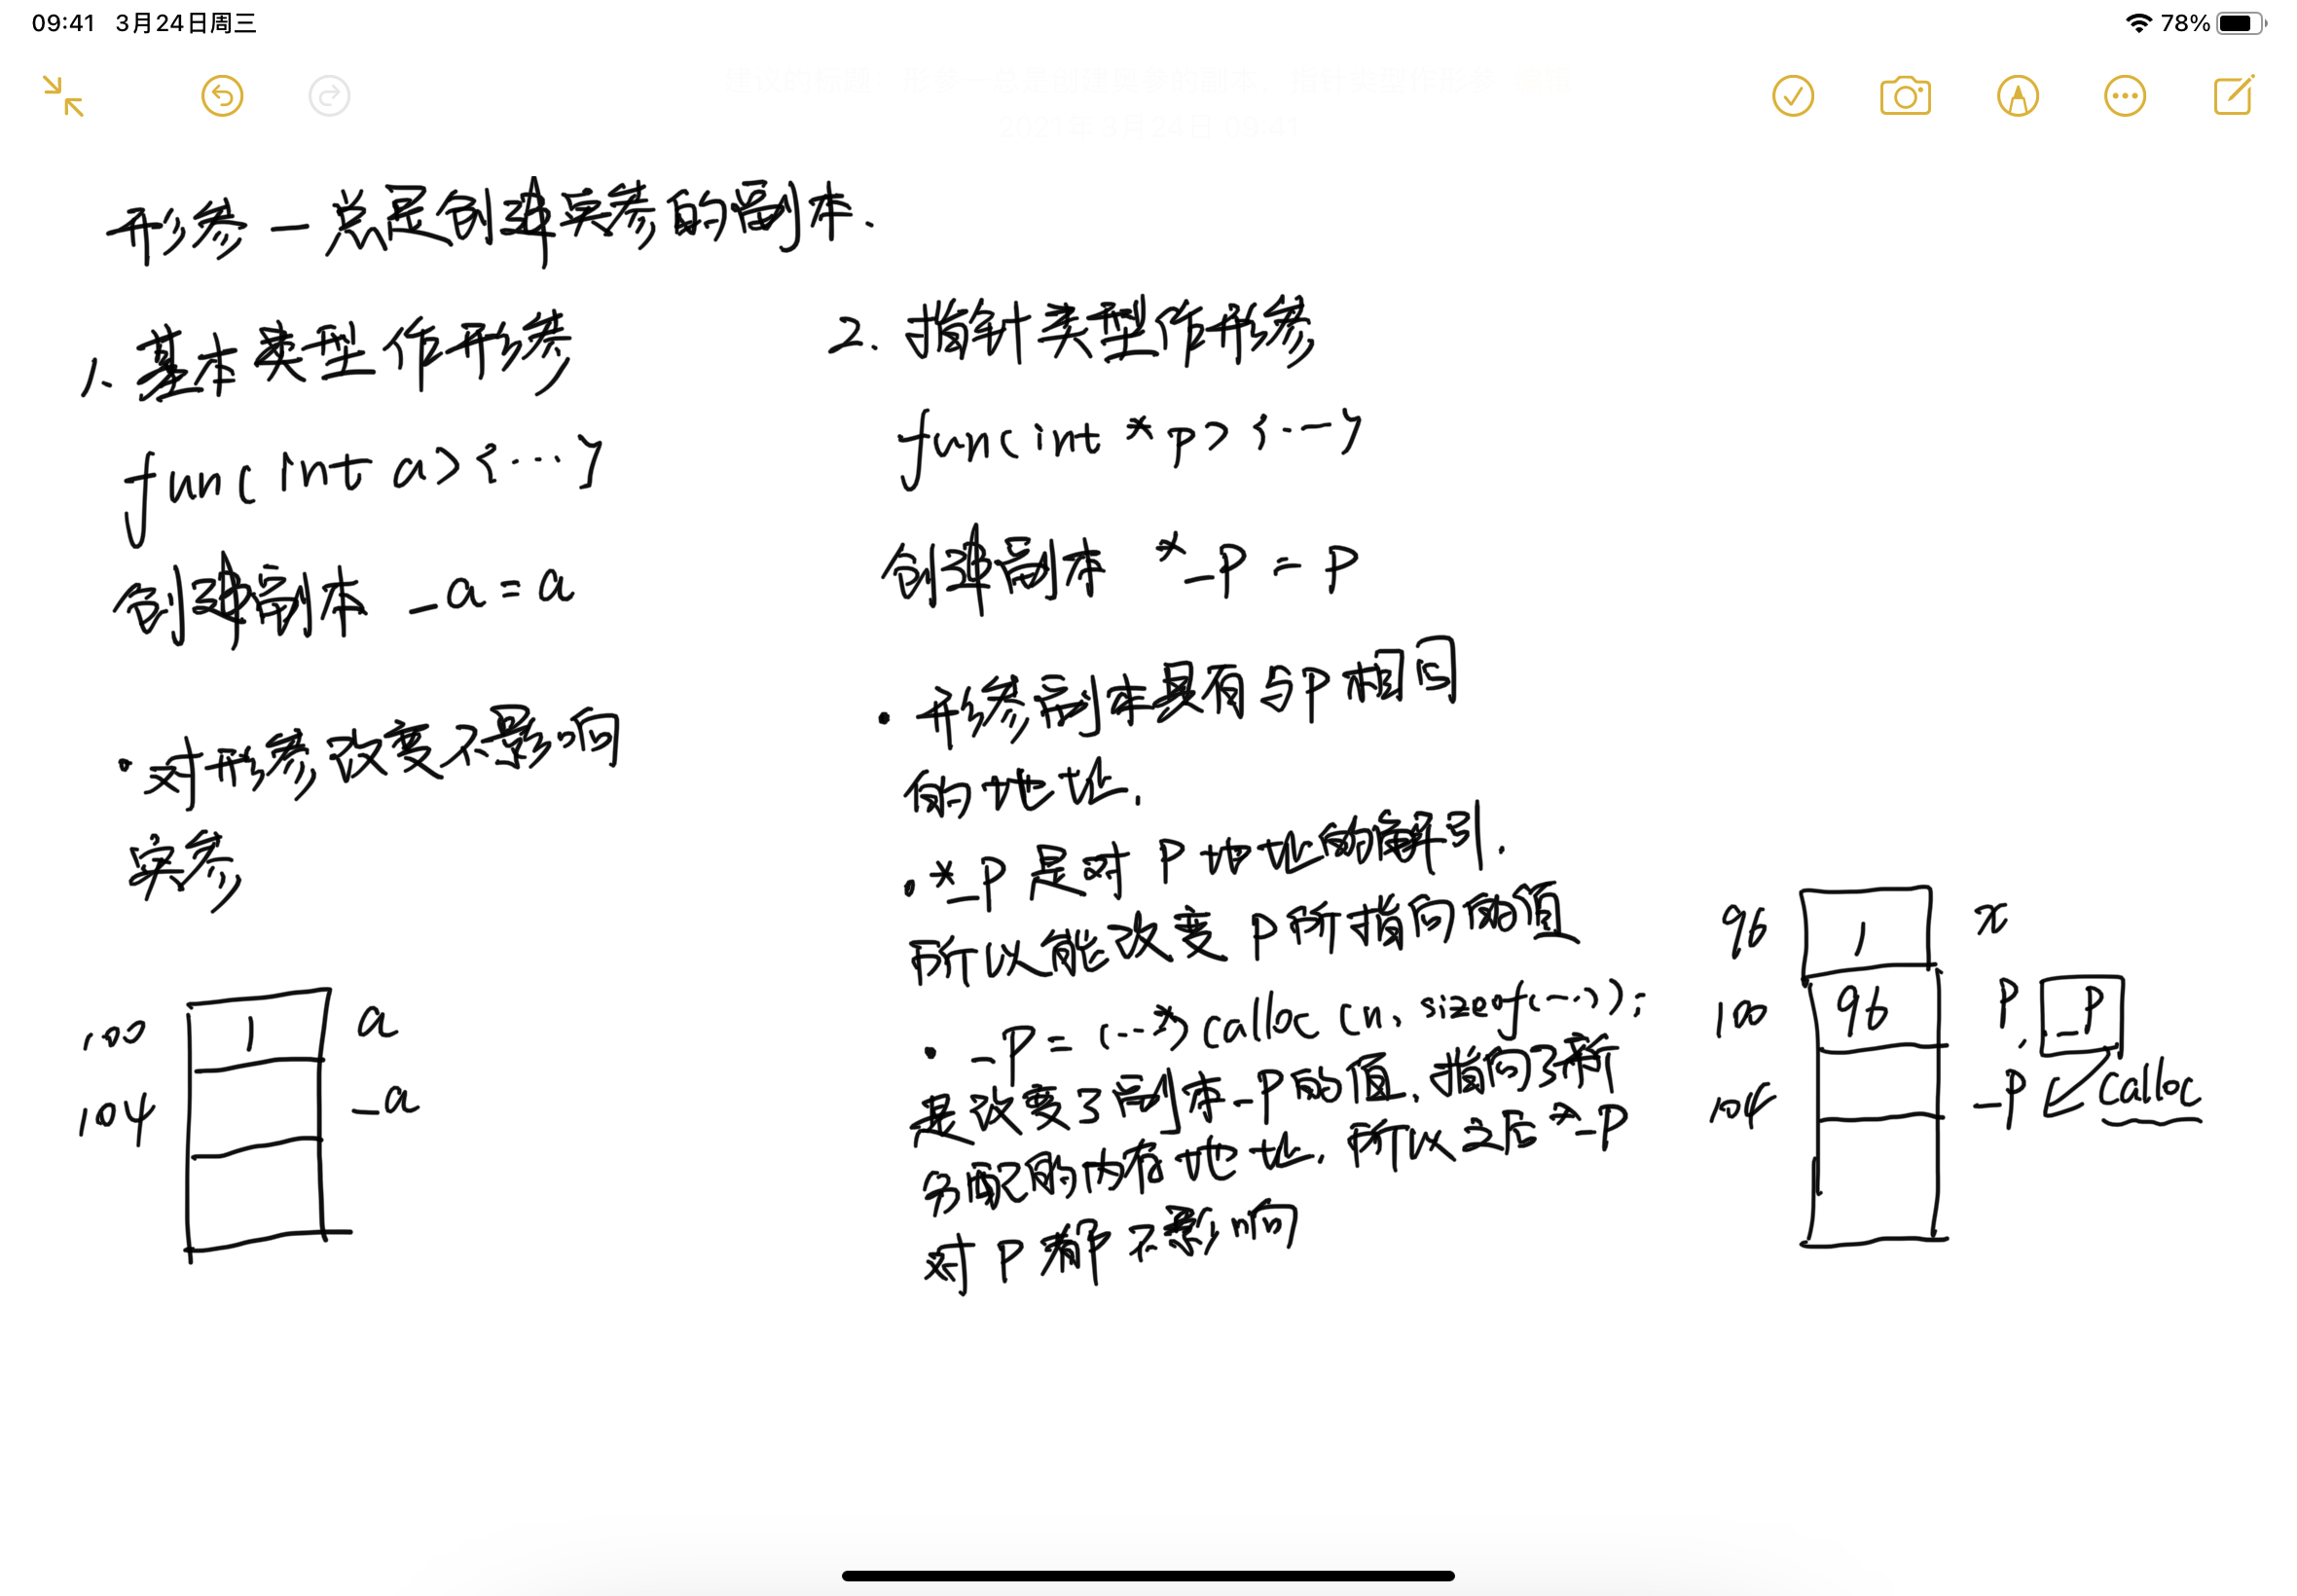 09:41 3月24日周三
78%
形参一总是创建实参的副本.
1. 基本类型作形参
func(int a){...}
创建副本 _a = a
·对形参改变不影响
实参
100 1 a
104 _a
2. 指针类型作形参
func(int *p){...}
创建副本 *_P = P
·形参副本具有与P相同
的地址.
·*_P是对P地址的解引.
所以能改变P所指向的值
·_P = (...*)calloc(n, sizeof(...));
是改变了副本_P的值.指向了新
分配的内存地址.所以之后*_P
对P都不影响
96 1 x
100 96 P. _P
104 _P calloc